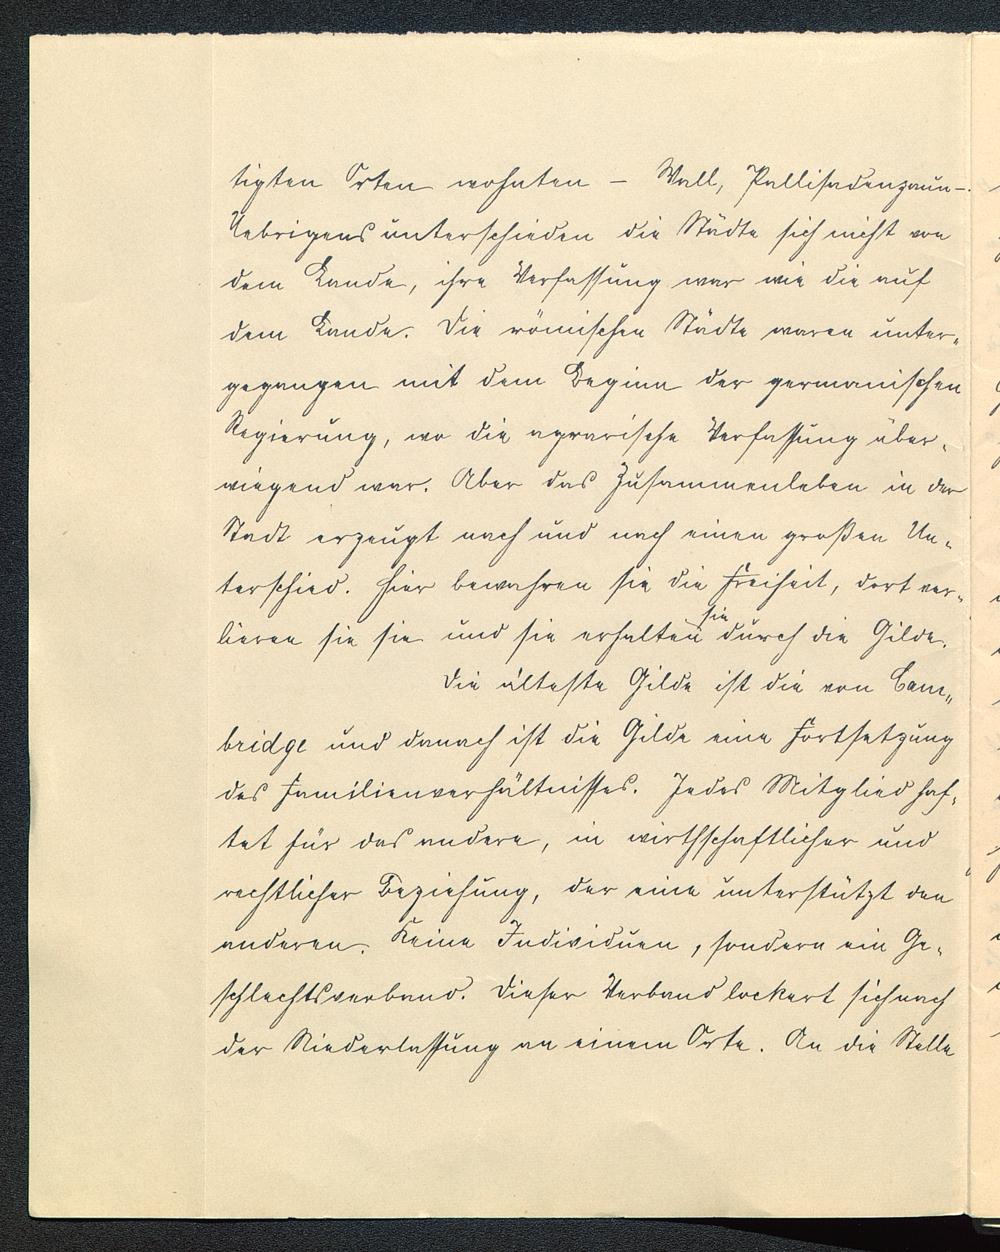 tigten Orten wohnten – Wall, Pallisadenzaun –.
Uebrigens unterschieden die Städte sich nicht von
dem Lande, ihre Verfassung war wie die auf
dem Lande. Die römischen Städte waren unter-
gegangen mit dem Beginn der germanischen
Regierung, wo die agrarische Verfassung über-
wiegend war. Aber das Zusammenleben in der
Stadt erzeugt nach und nach einen großen Un-
terschied. Hier bewahren sie die Freiheit, dort ver-
lieren sie sie und sie erhalten sie durch die Gilde.
Die älteste Gilde ist die von Cam-
bridge und danach ist die Gilde eine Fortsetzung
des Familienverhältnisses. Jedes Mitglied haf-
tet für das andere, in wirthschaftlicher und
rechtlicher Beziehung, der eine unterstützt den
anderen. Keine Individuen, sondern ein Ge-
schlechtsverband. Dieser Verband lockert sich nach
der Niederlassung an einem Orte. An die Stelle